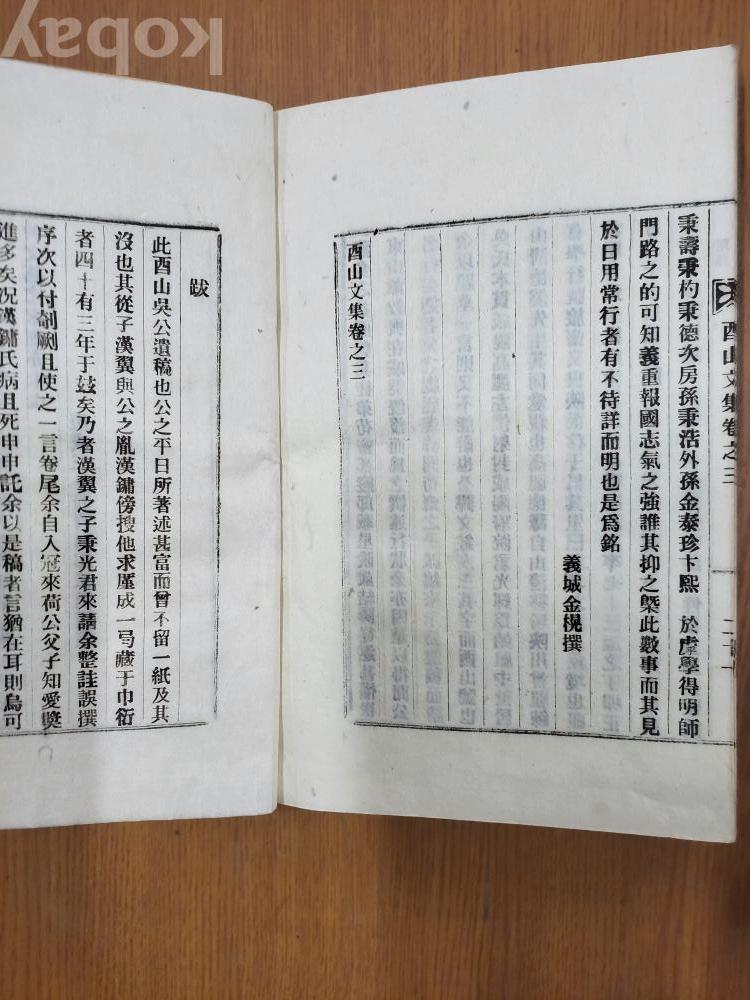 kobay
酉山文集卷之三
一
秉壽秉杓秉德次房孫秉浩外孫金泰珍卞熙 於虖學得明師
門路之的可知義重報國志氣之強誰其抑之槩此數事而其見
於日用常行者有不待詳而明也是爲銘
義城金榥撰
酉山文集卷之三
跋
此酉山吳公遺稿也公之平日所著述甚富而曾不留一紙及其
沒也其從子漢翼與公之胤漢鏞傍搜他求厪成一弓藏于巾衍
者四十有三年于玆矣乃者漢翼之子秉光君來請余整註誤撰
序次以付剞劂且使之一言卷尾余自入冠來荷公父子知愛奬
進多矣況漢鏞氏病且死申申託余以是稿者言猶在耳則烏可